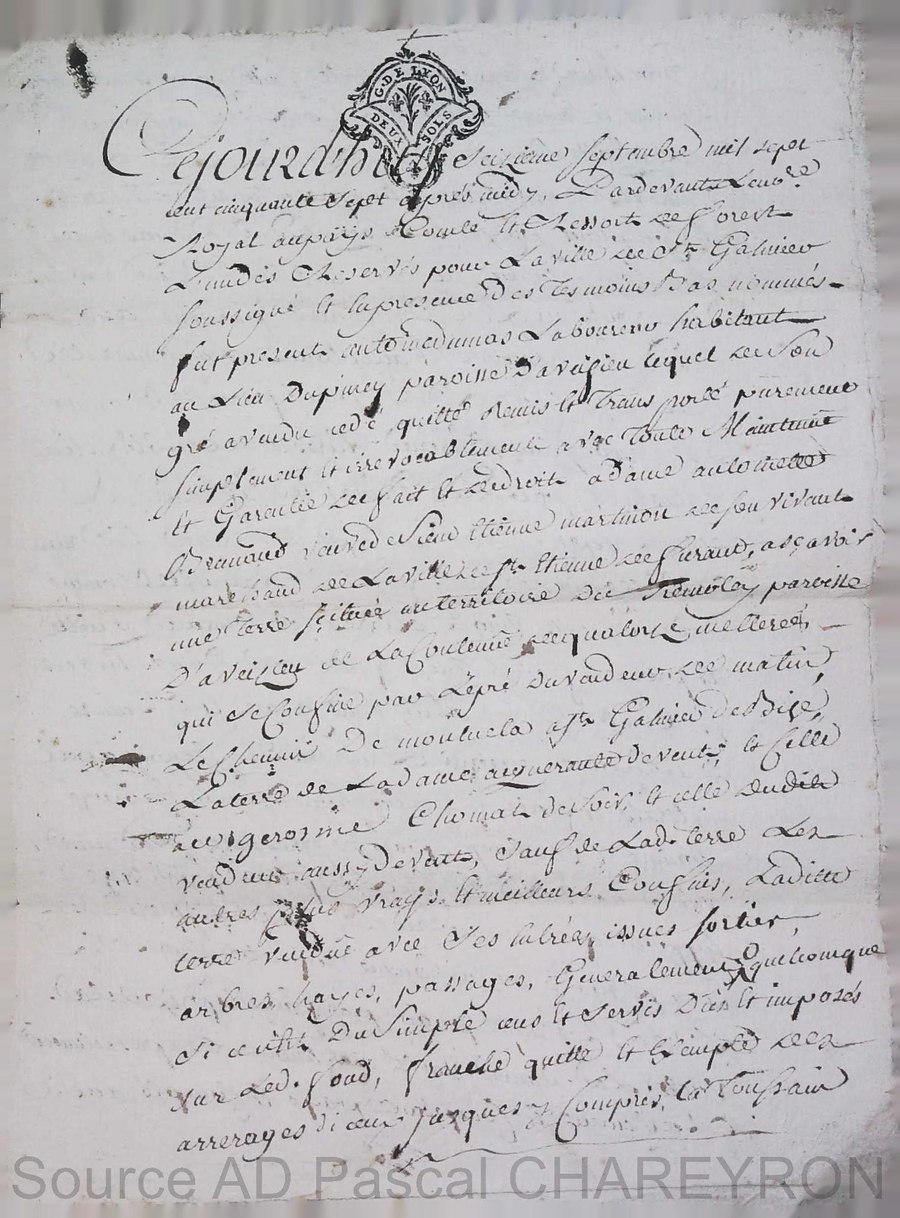 G. DE LYON
DEUX SOLS
Cejourd'huy Seizieme Septembre mil sept
cent cinquante Sept apres midy, Pardevant Le no.re
Royal au pays Comté Et Ressort de forest
L'un des Reservés pour La ville de St Galmier
soussigné Et En presence des Tesmoins Bas nommés
fut present antoine dumas Laboureur habitant
au Lieu Dupiney paroisse D'aveisieu lequel de Son
gré a vendu cedé quitté Remis Et Transporté purement
simplement Et irrevocablement avec Toute Maintenüe
Et Garentie de fait Et de droit a Dame antoinette
Bramand veuve de Sieur Etienne martinon de son vivant
marchand de La ville de St Etienne de furant, asçavoir
une Terre Scituée au territoire du Tremoley paroisse
D'aveizieu de La Contenüe de quatorze metterées,
qui Se Confine par Le pré du vendeur de matin,
Le Chemin De a St Galmier de Bize,
La terre de La dame de vent, Et Celle
de gerosme Chomat de Soir, Et celle dudit
vendeur aussy de vent, Sauf de Lad. terre Les
autres plus vrays Et meilleurs Confins, Laditte
terre vendüe avec Ses Entrées, issues sorties,
arbres, hayes, passages, Generalement quelconque
Si ce n'est Du Simple cens Et Servis Dus Et imposés
sur Led. fond, franche quitte Et Exempte de
arrerages d'iceux Jusques y Compris La Toussain
Source AD Pascal CHAREYRON